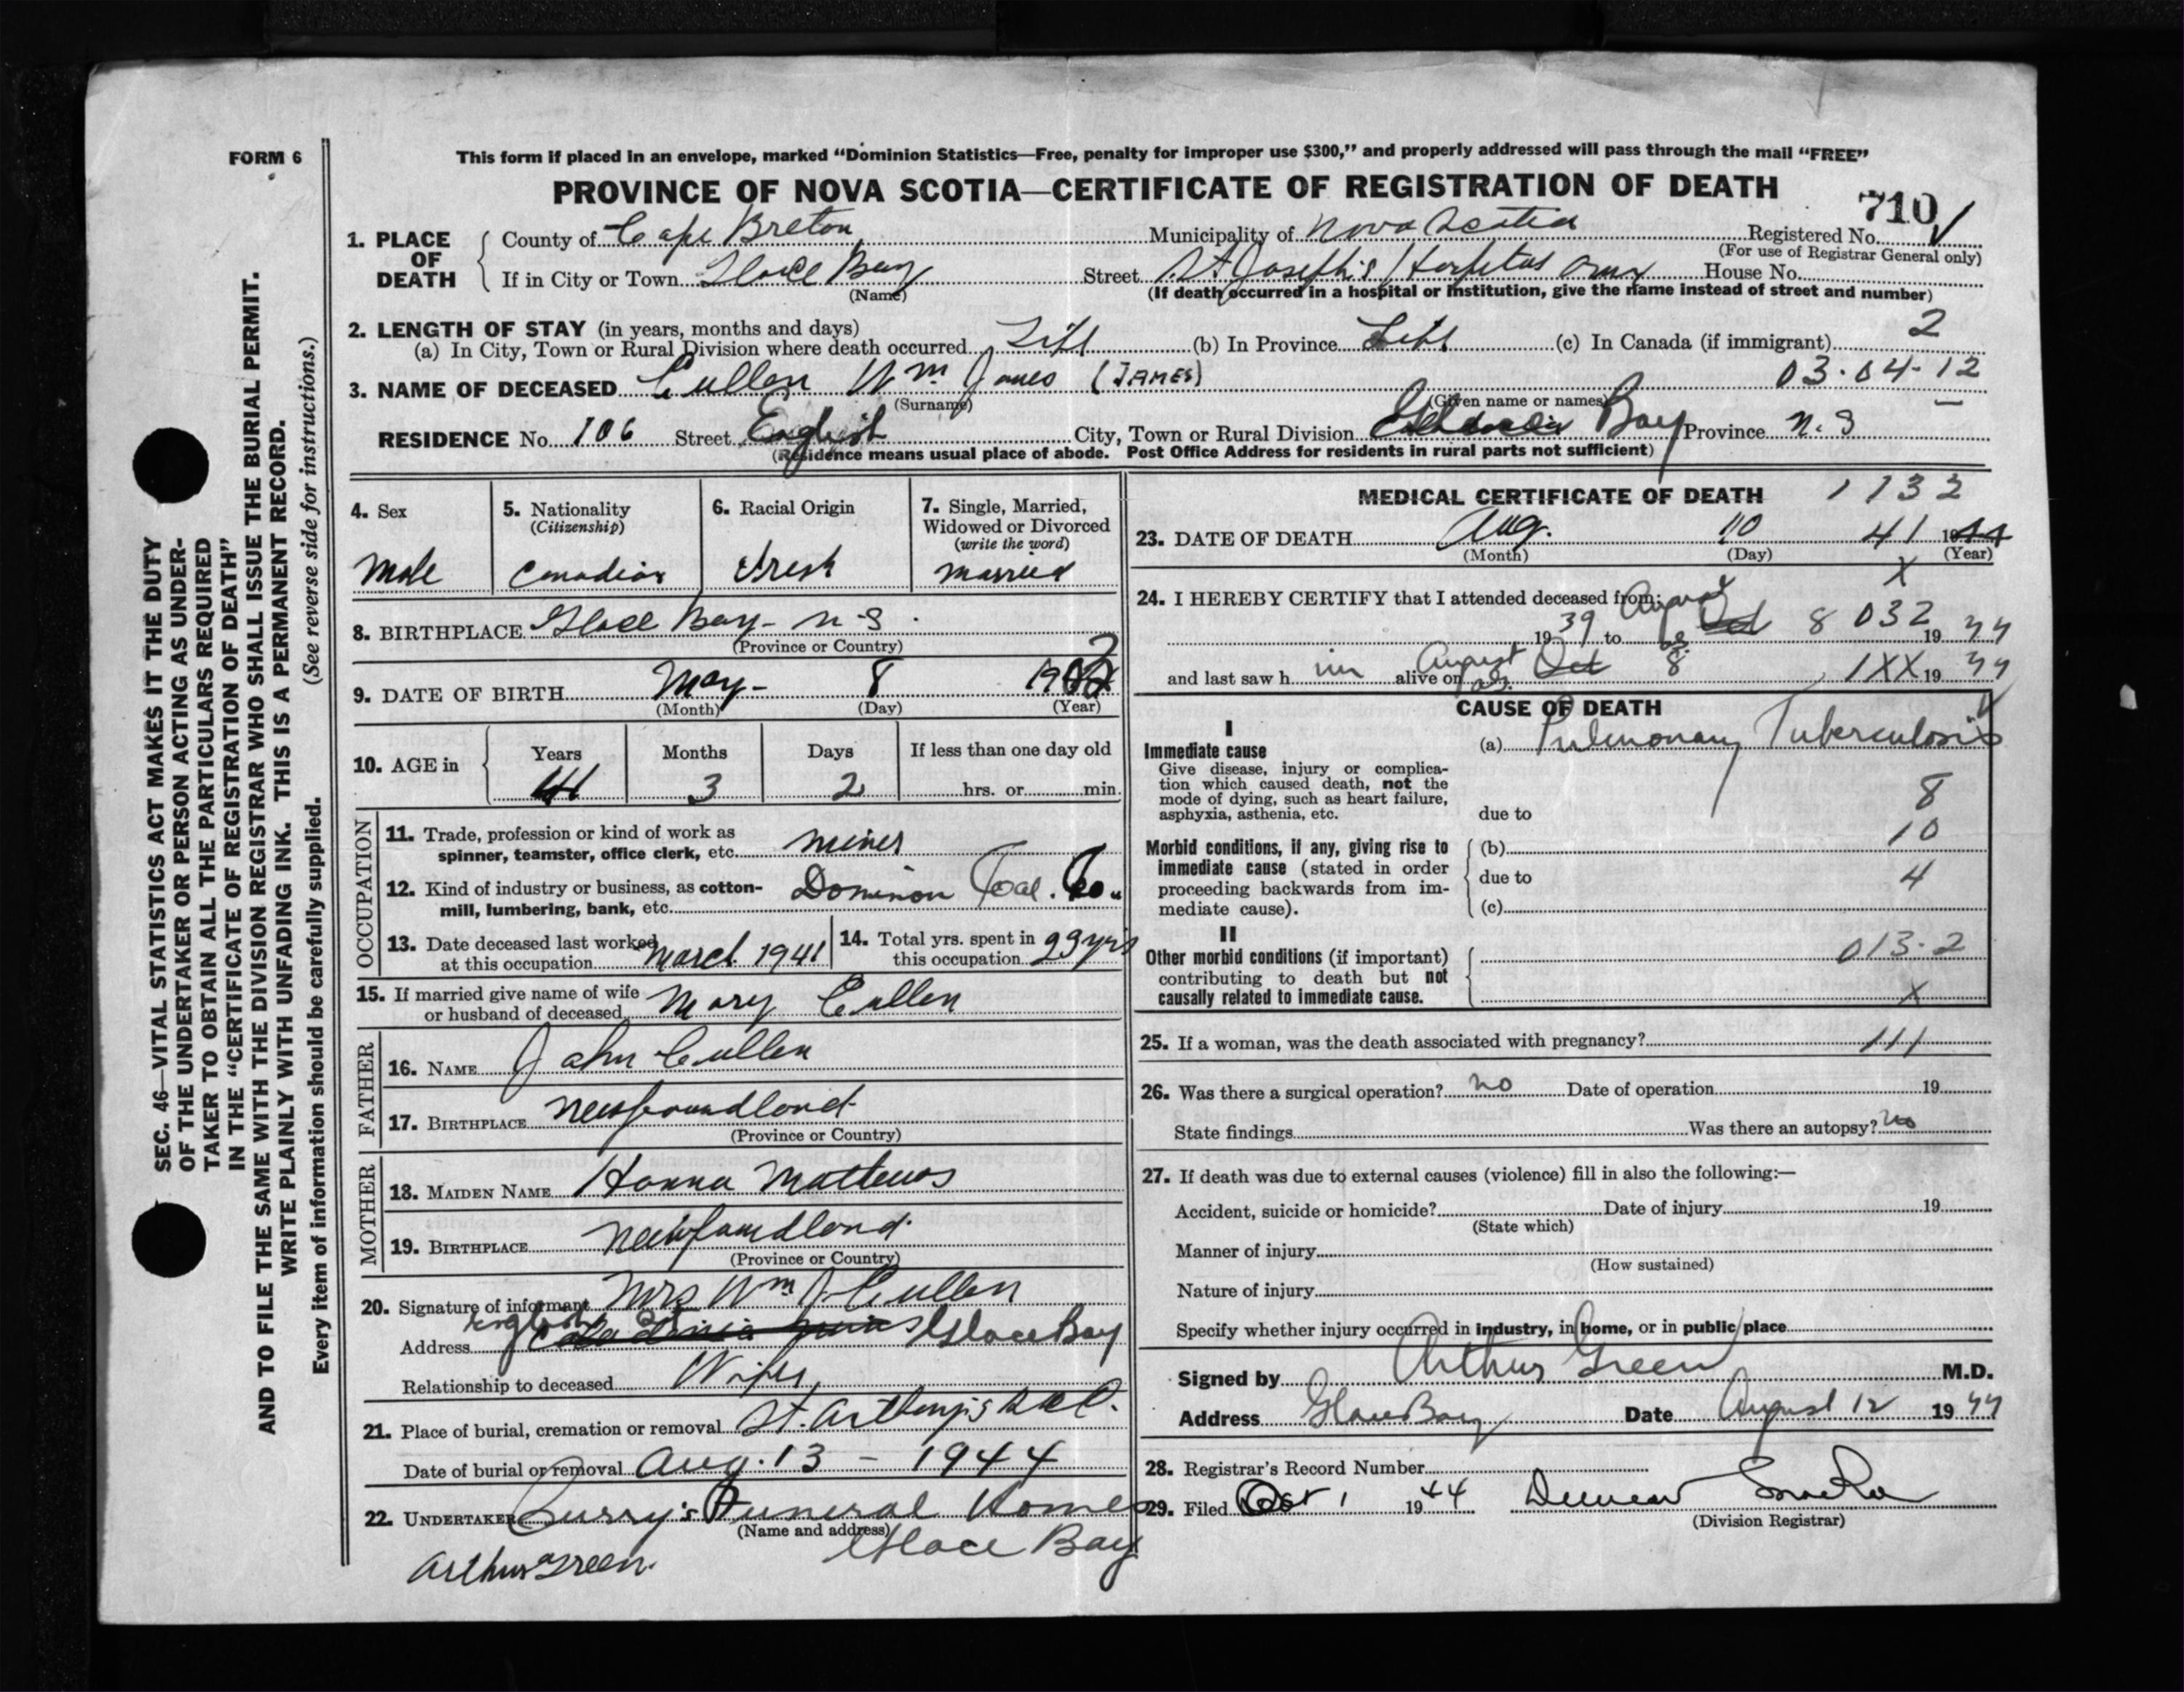 FORM 6
This form if placed in an envelope, marked “Dominion Statistics—Free, penalty for improper use $300,” and properly addressed will pass through the mail “FREE”
PROVINCE OF NOVA SCOTIA—CERTIFICATE OF REGISTRATION OF DEATH
710
1. PLACE OF DEATH
County of Cape Breton Municipality of Nova Scotia Registered No.
(For use of Registrar General only)
If in City or Town Glace Bay Street St Joseph's Hospital House No.
(Name) (If death occurred in a hospital or institution, give the name instead of street and number)
2. LENGTH OF STAY (in years, months and days) 2
(a) In City, Town or Rural Division where death occurred Life (b) In Province Life (c) In Canada (if immigrant)
3. NAME OF DECEASED Cullen Wm James (JAMES) 03-04-12
(Surname) (Given name or names)
RESIDENCE No. 106 Street English City, Town or Rural Division Bay Province N.S
(Residence means usual place of abode. Post Office Address for residents in rural parts not sufficient)
4. Sex
Male
5. Nationality
(Citizenship)
Canadian
6. Racial Origin
Irish
7. Single, Married, Widowed or Divorced
(write the word)
Married
8. BIRTHPLACE Glace Bay - N-S
(Province or Country)
9. DATE OF BIRTH May - 8 190
(Month) (Day) (Year)
10. AGE in
Years Months Days If less than one day old
41 3 2 hrs. or min.
OCCUPATION
11. Trade, profession or kind of work as
spinner, teamster, office clerk, etc. Miner
12. Kind of industry or business, as cotton-
mill, lumbering, bank, etc. Dominion Coal. Co.
13. Date deceased last worked
at this occupation March 1941
14. Total yrs. spent in
this occupation 23 yrs
15. If married give name of wife
or husband of deceased Mary Cullen
FATHER
16. NAME John Cullen
17. BIRTHPLACE Newfoundland
(Province or Country)
MOTHER
18. MAIDEN NAME Hanna Mathews
19. BIRTHPLACE Newfoundland
(Province or Country)
20. Signature of informant Mrs Wm J. Cullen
Address English St Glace Bay
Relationship to deceased Wife
21. Place of burial, cremation or removal St. Anthony's
Date of burial or removal Aug. 13 - 1944
22. UNDERTAKER Curry's Funeral Home
(Name and address)
Glace Bay
Arthur Green.
MEDICAL CERTIFICATE OF DEATH 1132
23. DATE OF DEATH Aug. 10 41 1944
(Month) (Day) (Year)
X
24. I HEREBY CERTIFY that I attended deceased from:
1939 to August Oct 8 032 1944
and last saw him alive on August Oct 8 1XX 1944
CAUSE OF DEATH
I
Immediate cause
Give disease, injury or complica-
tion which caused death, not the
mode of dying, such as heart failure,
asphyxia, asthenia, etc.
(a) Pulmonary Tuberculosis
8
due to
Morbid conditions, if any, giving rise to
immediate cause (stated in order
proceeding backwards from im-
mediate cause).
(b) 10
due to 4
(c)
II
Other morbid conditions (if important)
contributing to death but not
causally related to immediate cause.
013-2
X
25. If a woman, was the death associated with pregnancy? 111
26. Was there a surgical operation? no Date of operation 19
State findings Was there an autopsy? no
27. If death was due to external causes (violence) fill in also the following:—
Accident, suicide or homicide? Date of injury 19
(State which)
Manner of injury
(How sustained)
Nature of injury
Specify whether injury occurred in industry, in home, or in public place
Signed by Arthur Green M.D.
Address Glace Bay Date August 12 1944
28. Registrar's Record Number
29. Filed Oct 1 1944 Duncan
(Division Registrar)
SEC. 46—VITAL STATISTICS ACT MAKES IT THE DUTY
OF THE UNDERTAKER OR PERSON ACTING AS UNDER-
TAKER TO OBTAIN ALL THE PARTICULARS REQUIRED
IN THE “CERTIFICATE OF REGISTRATION OF DEATH”
AND TO FILE THE SAME WITH THE DIVISION REGISTRAR WHO SHALL ISSUE THE BURIAL PERMIT.
WRITE PLAINLY WITH UNFADING INK. THIS IS A PERMANENT RECORD.
Every item of information should be carefully supplied. (See reverse side for instructions.)